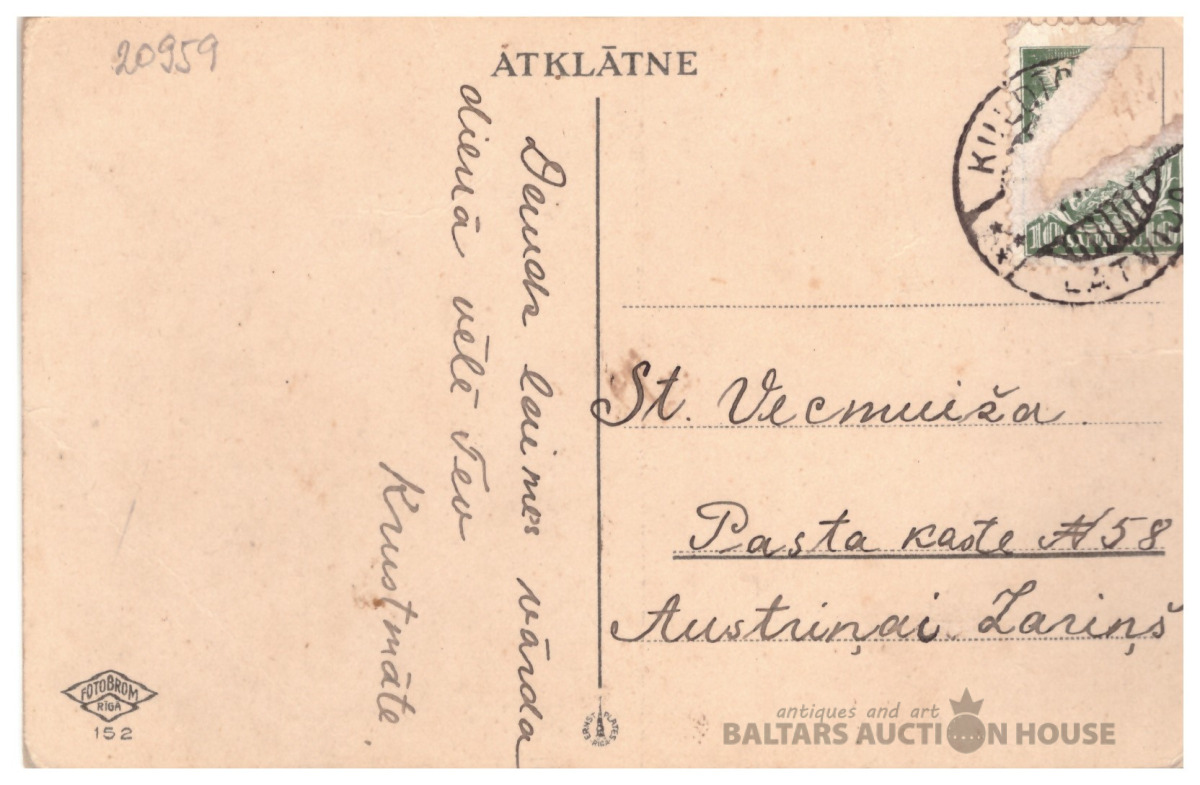 20959
ATKLĀTNE
KULDĪGA
LATVIJA
10
Daudz laimes vārda
dienā vēlē Tev
Krustmāte.
St. Vecmuiža.
Pasta kaste № 58
Austriņai Zariņš
FOTOBROM
RĪGA
152
ERNST PLATES RĪGA
antiques and art
BALTARS AUCTION HOUSE